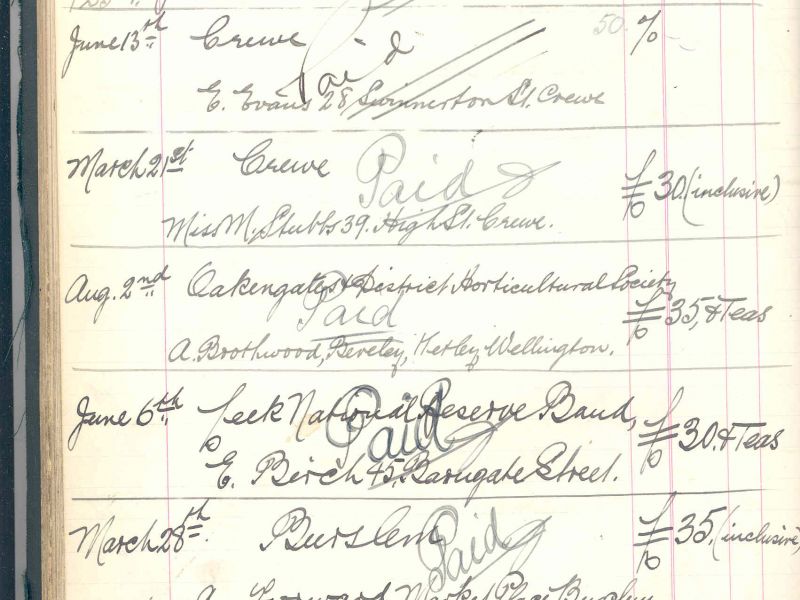 June 13th Crewe - & 50 %
Paid
E. Evans 28, Swinnerton St. Crewe
March 21st Crewe Paid £30. (inclusive)
Miss M. Stubbs 39. High St. Crewe.
Aug. 2nd Oakengates & District Horticultural Society
Paid £35, & Teas
A. Brothwood, Beveley, Ketley, Wellington.
June 6th Leek National Reserve Band,
Paid £30. & Teas
E. Birch 45. Barngate Street.
March 28th Burslem Paid £35. (inclusive)
Market Place Burslem